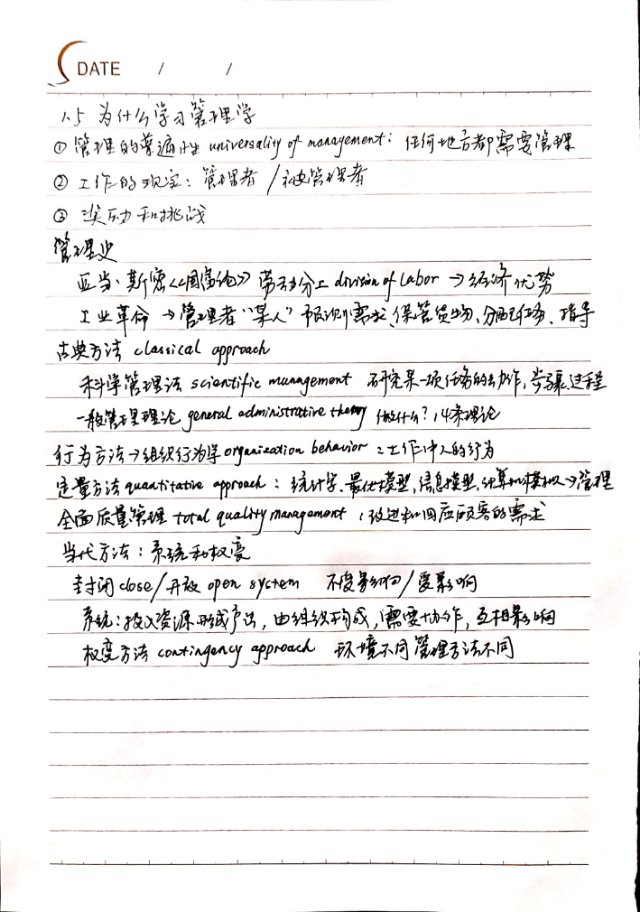 DATE / /
1.5 为什么学习管理学
① 管理的普遍性 universality of management: 任何地方都需要管理
② 工作的现实: 管理者/被管理者
③ 奖励和挑战
管理史
亚当·斯密《国富论》 劳动分工 division of labor → 经济优势
工业革命 → 管理者“某人” 预测需求、保管货物、分配任务、指导
古典方法 classical approach
科学管理法 scientific management 研究某一项任务的动作,步骤,过程
一般管理理论 general administrative theory 做什么? 14条理论
行为方法→组织行为学 organization behavior: 工作中人的行为
定量方法 quantitative approach: 统计学、最优模型,信息模型,计算机模拟→管理
全面质量管理 total quality management: 改进和回应顾客的需求
当代方法: 系统和权变
封闭 close/开放 open system 不受影响/受影响
系统: 投入资源形成产出, 由组织构成, 需要协作, 互相影响
权变方法 contingency approach 环境不同管理方法不同